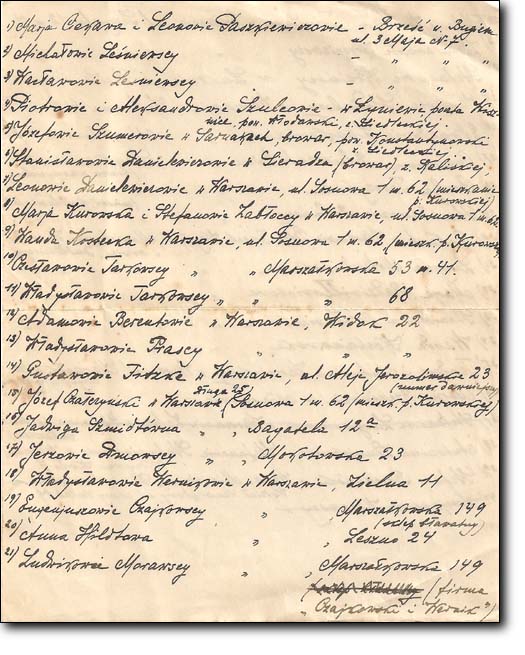 1) Marja Cekawa i Leonowie Daszkiewiczowie - Brześć n. Bugiem
ul. 3 Maja N-7.
2) Michałowie Leśniewscy - " " "
3) Wacławowie Leśniewscy - " " "
4) Piotrowie i Aleksandrowie Szulcowie - w
pow. Włodawski, z. Siedleckiej.
5) Józefowie Szumerowie w Sarnakach, browar, pow. Konstantynowski
z. Siedleckiej
6) Stanisławowie Danielewiczowie w Sieradzu (browar) z. Kaliskiej,
7) Leonowie Danielewiczowie w Warszawie, ul. Sosnowa 1 m. 62 (mieszkanie
p. Kurowskiej)
8) Marja Kurowska i Stefanowie Zabłoccy w Warszawie, ul. Sosnowa 1 m. 62
9) Wanda Kostecka w Warszawie, ul. Sosnowa 1 m. 62 (mieszk. p. Kurowskiej)
10) Czesławowie Tarkowscy " " Marszałkowska 53 m. 41.
11) Władysławowie Tarkowscy " " " 68
12) Adamowie Berentowie w Warszawie, Widok 22
13) Władysławowie Piascy " "
14) Gustawowie Titzke w Warszawie, ul. Aleje Jerozolimska 23
(numer dawniejszy)
15) Józef w Warszawie (Sosnowa 1 m. 62 (mieszk. p. Kurowskiej)
Długa 25
16) Jadwiga Szmidtówna " Bagatela 12a
17) Jerzowie Dmowscy " " Mokotowska 23
18) Władysławowie Warnikowie w Warszawie, Zielna 11
19) Eugenjuszowie Czajkowscy " Marszałkowska 149
(sklep bławatny)
20) Anna Hildtowa " Leszno 24
21) Ludwikowie Morawscy " Marszałkowska 149
(firma
"Czajkowski i Warnik")